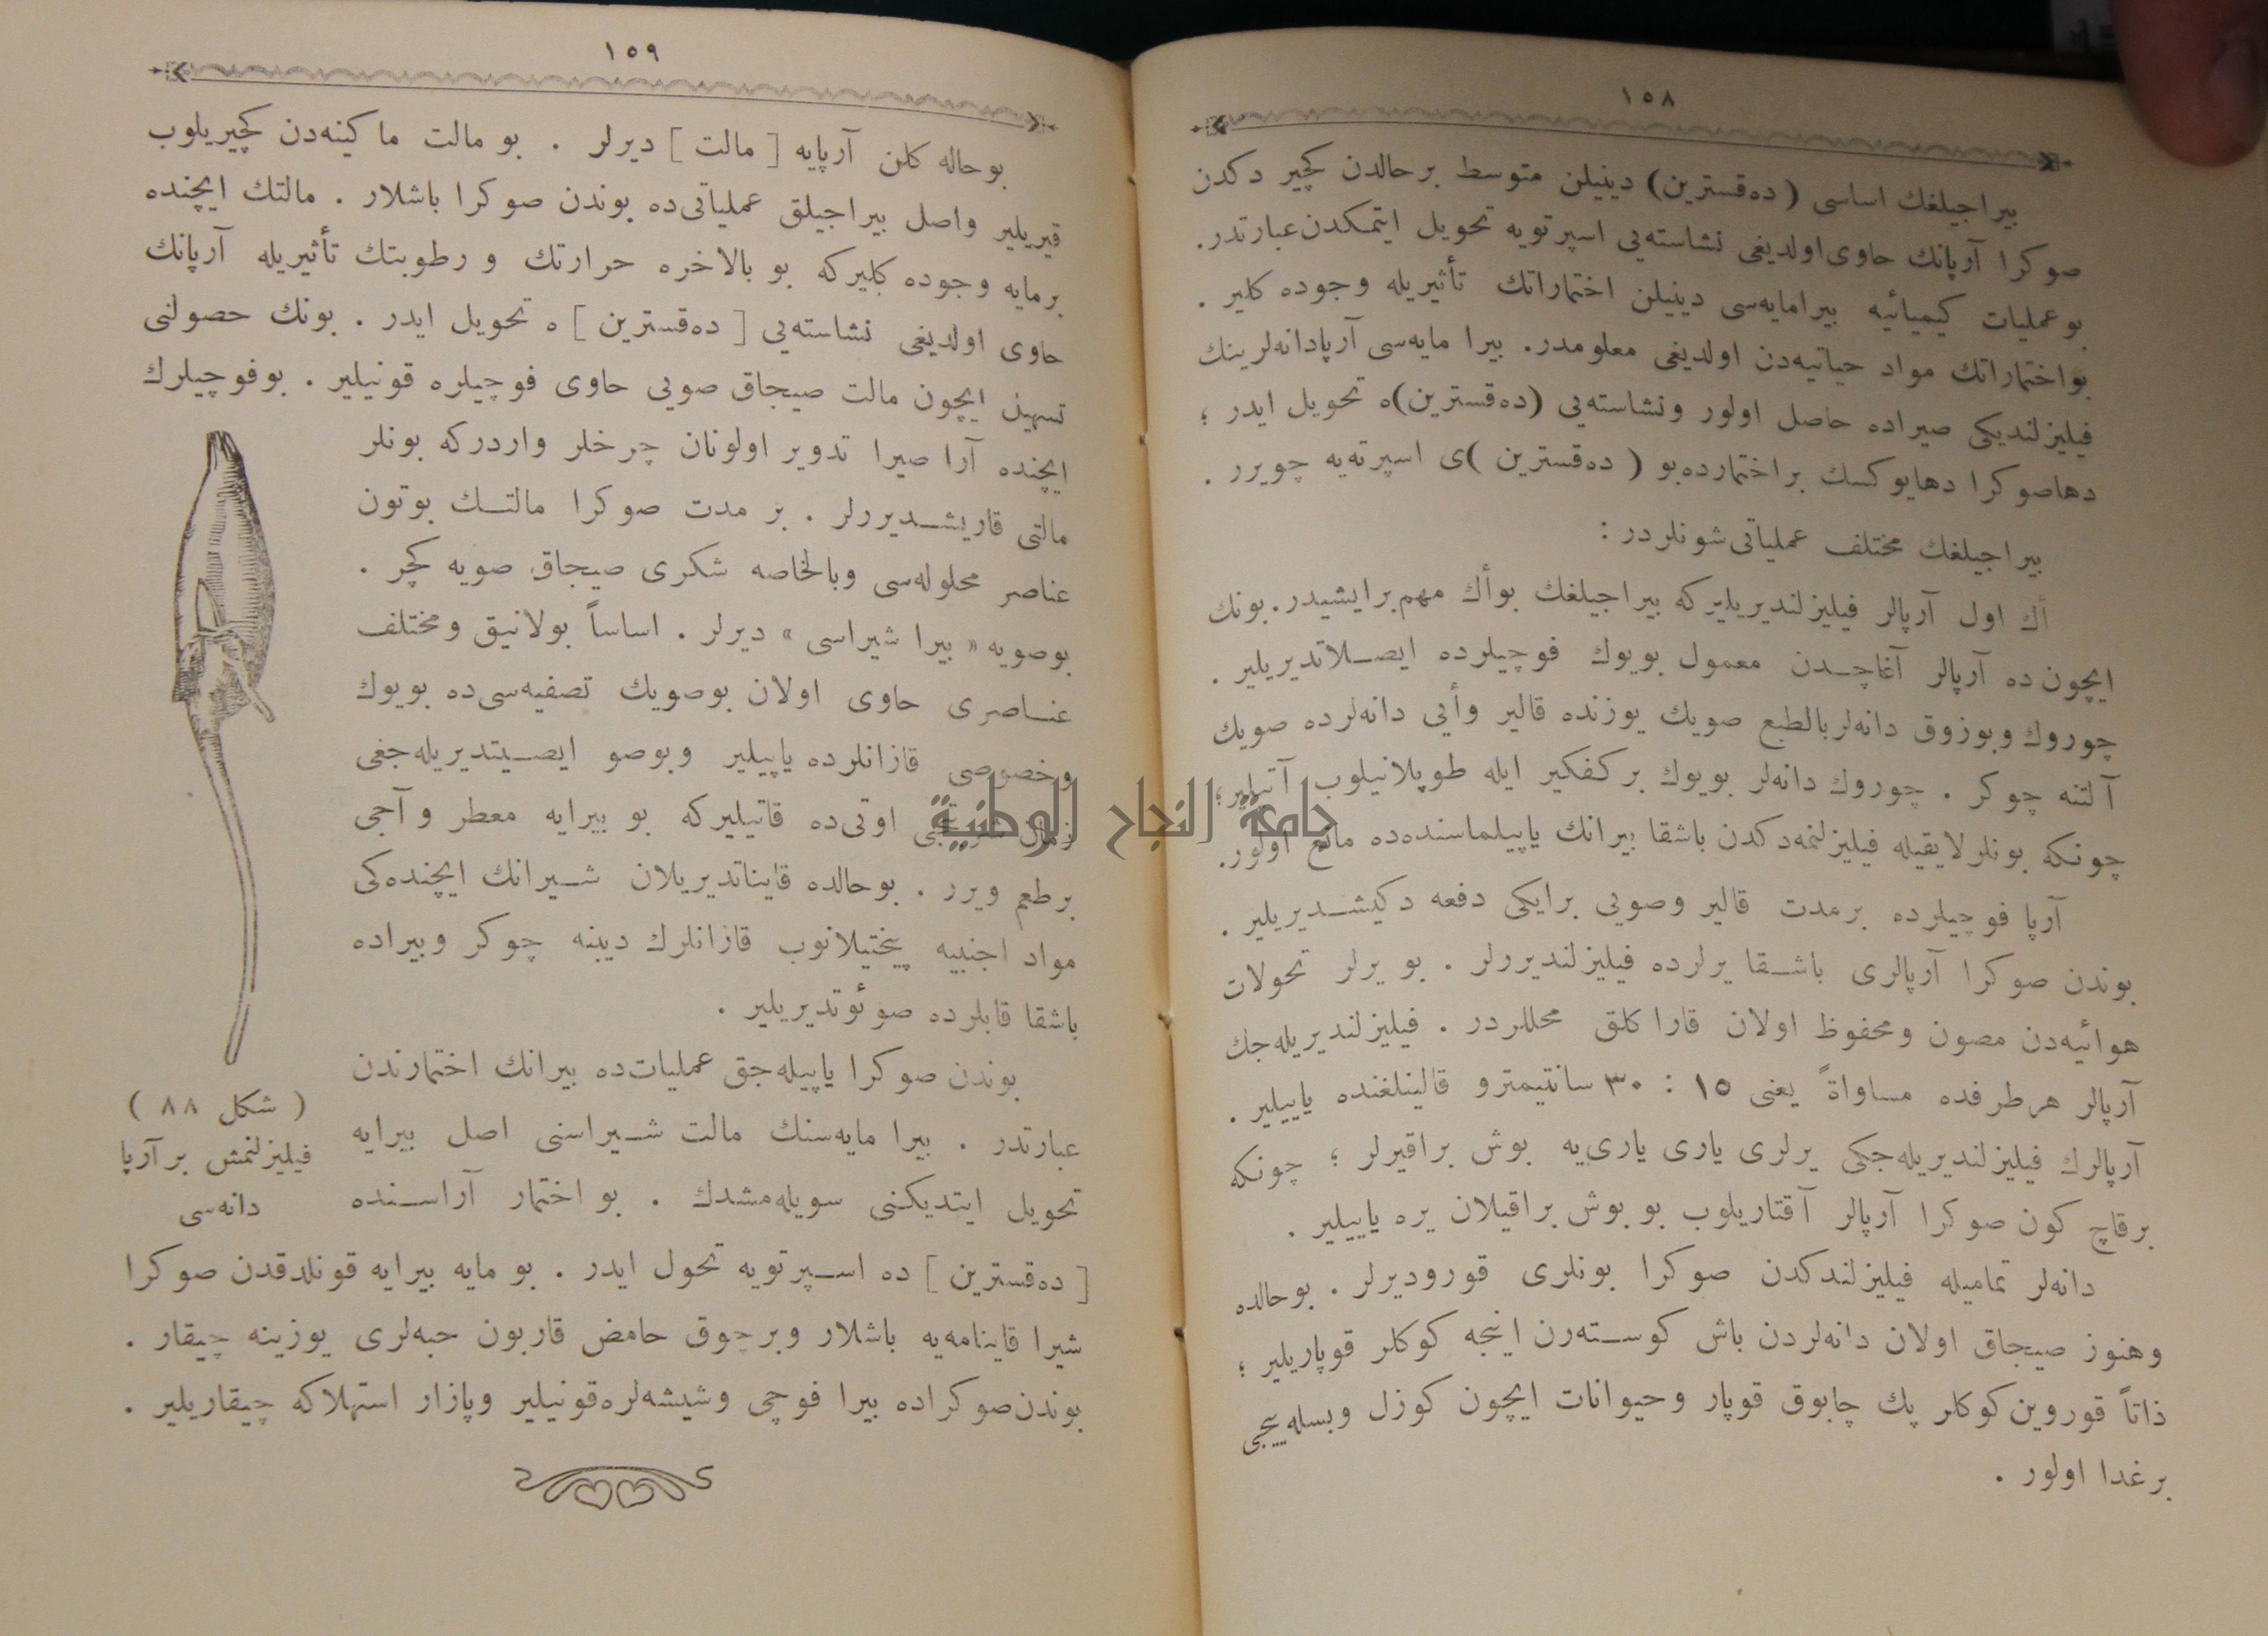 ١٥٨
بيراجيلغك اساسی (ده‌قسترين) دينيلن متوسط برحالدن كچيردكدن
صوكرا آرپانك حاوی‌اولديغی نشاسته‌يی اسپرتويه تحويل ايتمكدن‌عبارتدر.
بوعمليات كيميائيه بيرامايه‌سی دينيلن اختماراتك تأثيريله وجوده كلير .
بواختماراتك مواد حياتيه‌دن اولديغی معلومدر. بيرا مايه‌سی آرپادانه‌لرينك
فيليزلنديكی صيراده حاصل اولور ونشاسته‌يی (ده‌قسترين)ه تحويل ايدر ؛
دهاصوكرا دهايوكسك براختمارده‌بو ( ده‌قسترين )ی اسپرته‌يه چويرر .
بيراجيلغك مختلف عملياتی‌شونلردر :
أك اول آرپالر فيليزلنديريليركه بيراجيلغك بوأك مهم‌برايشيدر.بونك
ايچون‌ده آرپالر آغاچدن معمول بويوك فوچيلرده ايصلاتديريلير .
چوروك وبوزوق دانه‌لربالطبع صويك يوزنده قالير وأيی دانه‌لرده صويك
آلتنه چوكر . چوروك دانه‌لر بويوك بركفكير ايله طوپلانيلوب آتيلير؛
چونكه بونلرلايقيله فيليزلنمه‌دكدن باشقا بيرانك ياپيلماسنده‌ده مانع اولور.
آرپا فوچيلرده برمدت قالير وصويی برايكی دفعه دكيشديريلير .
بوندن صوكرا آرپالری باشقا يرلرده فيليزلنديررلر . بو يرلر تحولات
هوائيه‌دن مصون ومحفوظ اولان قاراكلق محللردر . فيليزلنديريله‌جك
آرپالر هرطرفده مساواةً يعنی ١٥ : ٣٠ سانتيمترو قالينلغنده ياييلير .
آرپالرك فيليزلنديريله‌جكی يرلری ياری ياری‌يه بوش براقيرلر ؛ چونكه
برقاچ كون صوكرا آرپالر آقتاريلوب بو بوش براقيلان يره ياييلير .
دانه‌لر تماميله فيليزلندكدن صوكرا بونلری قوروديرلر . بوحالده
وهنوز صيجاق اولان دانه‌لردن باش كوسته‌رن اينجه كوكلر قوپاريلير ؛
ذاتاً قوروين‌كوكلر پك چابوق قوپار وحيوانات ايچون كوزل وبسله‌ييجی
برغدا اولور .
١٥٩
بوحاله كلن آرپايه [ مالت ] ديرلر . بو مالت ماكينه‌دن كچيريلوب
قيريلير واصل بيراجيلق عملياتی‌ده بوندن صوكرا باشلار . مالتك ايچنده
برمايه وجوده كليركه بو بالاخره حرارتك و رطوبتك تأثيريله آرپانك
حاوی اولديغی نشاسته‌يی [ ده‌قسترين ] ه تحويل ايدر . بونك حصولنی
تسهيل ايچون مالت صيجاق صويی حاوی فوچيلره قونيلير . بوفوچيلرك
ايچنده آرا صيرا تدوير اولونان چرخلر واردركه بونلر
مالتی قاريشديررلر . بر مدت صوكرا مالتك بوتون
عناصر محلوله‌سی وبالخاصه شكری صيجاق صويه كچر .
بوصويه « بيرا شيراسی » ديرلر . اساساً بولانيق ومختلف
عناصری حاوی اولان بوصويك تصفيه‌سی‌ده بويوك
وخصوصی قازانلرده ياپيلير وبوصو ايصيتديريله‌جغی
زمان شربتجی اوتی‌ده قاتيليركه بو بيرايه معطر وآجی
برطعم ويرر . بوحالده قايناتديريلان شيرانك ايچنده‌كی
مواد اجنبيه پيختيلانوب قازانلرك ديبنه چوكر وبيراده
باشقا قابلرده صوئوتديريلير .
بوندن صوكرا ياپيله‌جق عمليات‌ده بيرانك اختمارندن
عبارتدر . بيرا مايه‌سنك مالت شيراسنی اصل بيرايه
تحويل ايتديكنی سويله‌مشدك . بو اختمار آراسنده
[ ده‌قسترين ] ده اسپرتويه تحول ايدر . بو مايه بيرايه قونلدقدن صوكرا
شيرا قاينامه‌يه باشلار وبرچوق حامض قاربون حبه‌لری يوزينه چيقار .
بوندن‌صوكراده بيرا فوچی وشيشه‌لره‌قونيلير وپازار استهلاكه چيقاريلير .
( شكل ٨٨ )
فيليزلنمش برآرپا
دانه‌سی
جامعة النجاح الوطنية